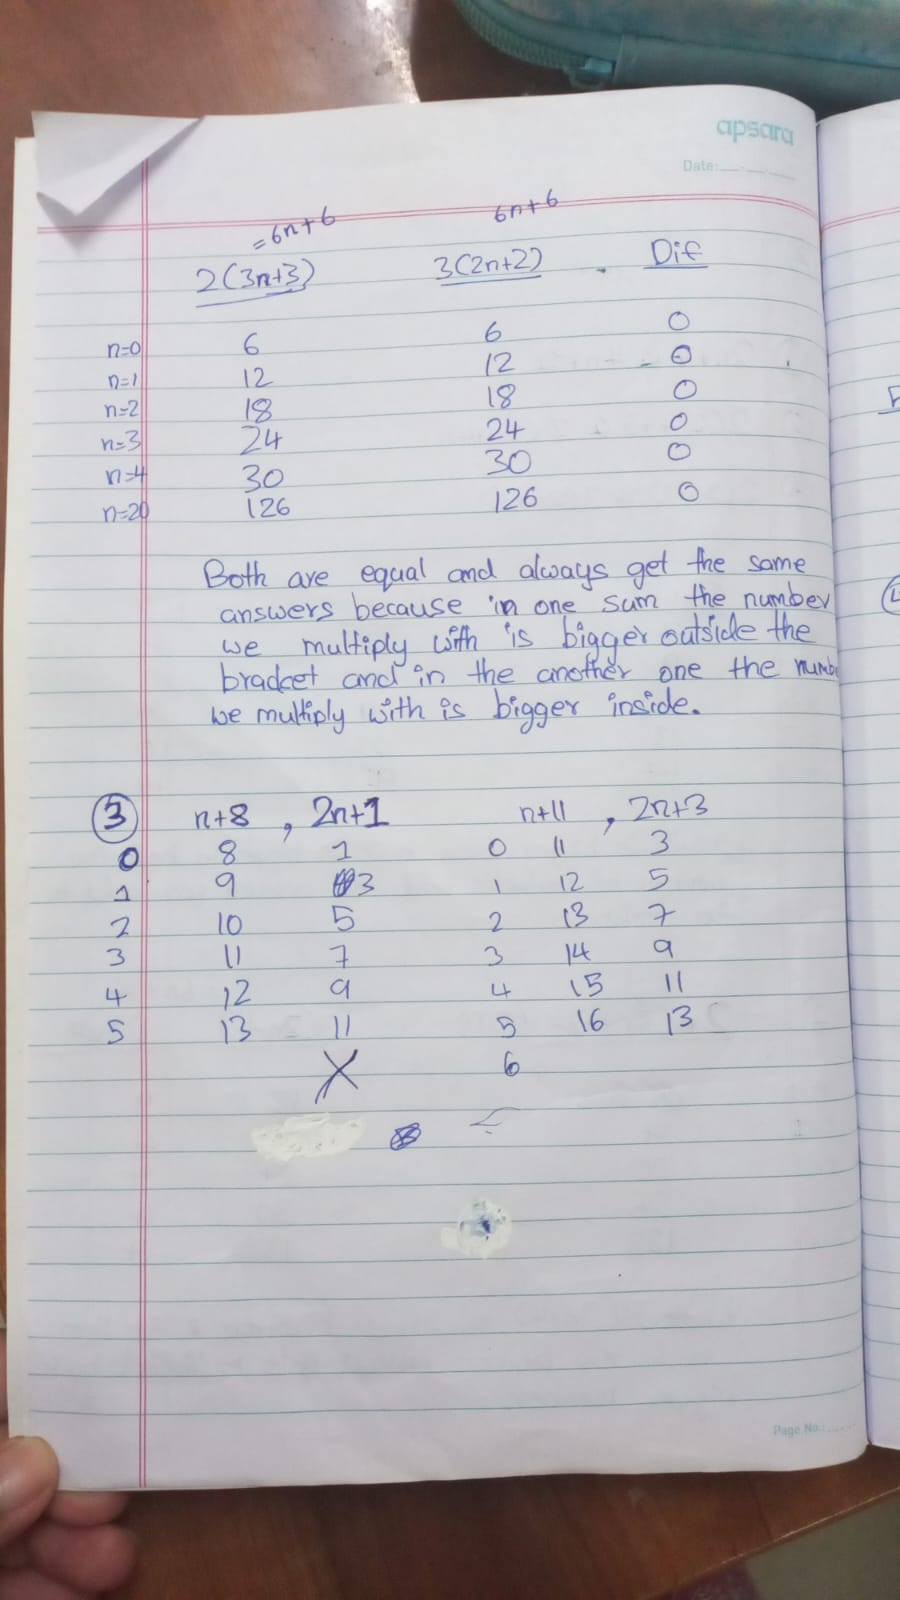 apsara
Date:
=6n+6 6n+6
2(3n+3) 3(2n+2) Dif
n=0 6 6 0
n=1 12 12 0
n=2 18 18 0
n=3 24 24 0
n=4 30 30 0
n=20 126 126 0
Both are equal and always get the same
answers because in one sum the number
we multiply with is bigger outside the
bracket and in the another one the numbe
we multiply with is bigger inside.
3 n+8 , 2n+1 n+11 , 2n+3
0 8 1 0 11 3
1 9 3 1 12 5
2 10 5 2 13 7
3 11 7 3 14 9
4 12 9 4 15 11
5 13 11 5 16 13
X 6
Page No.: